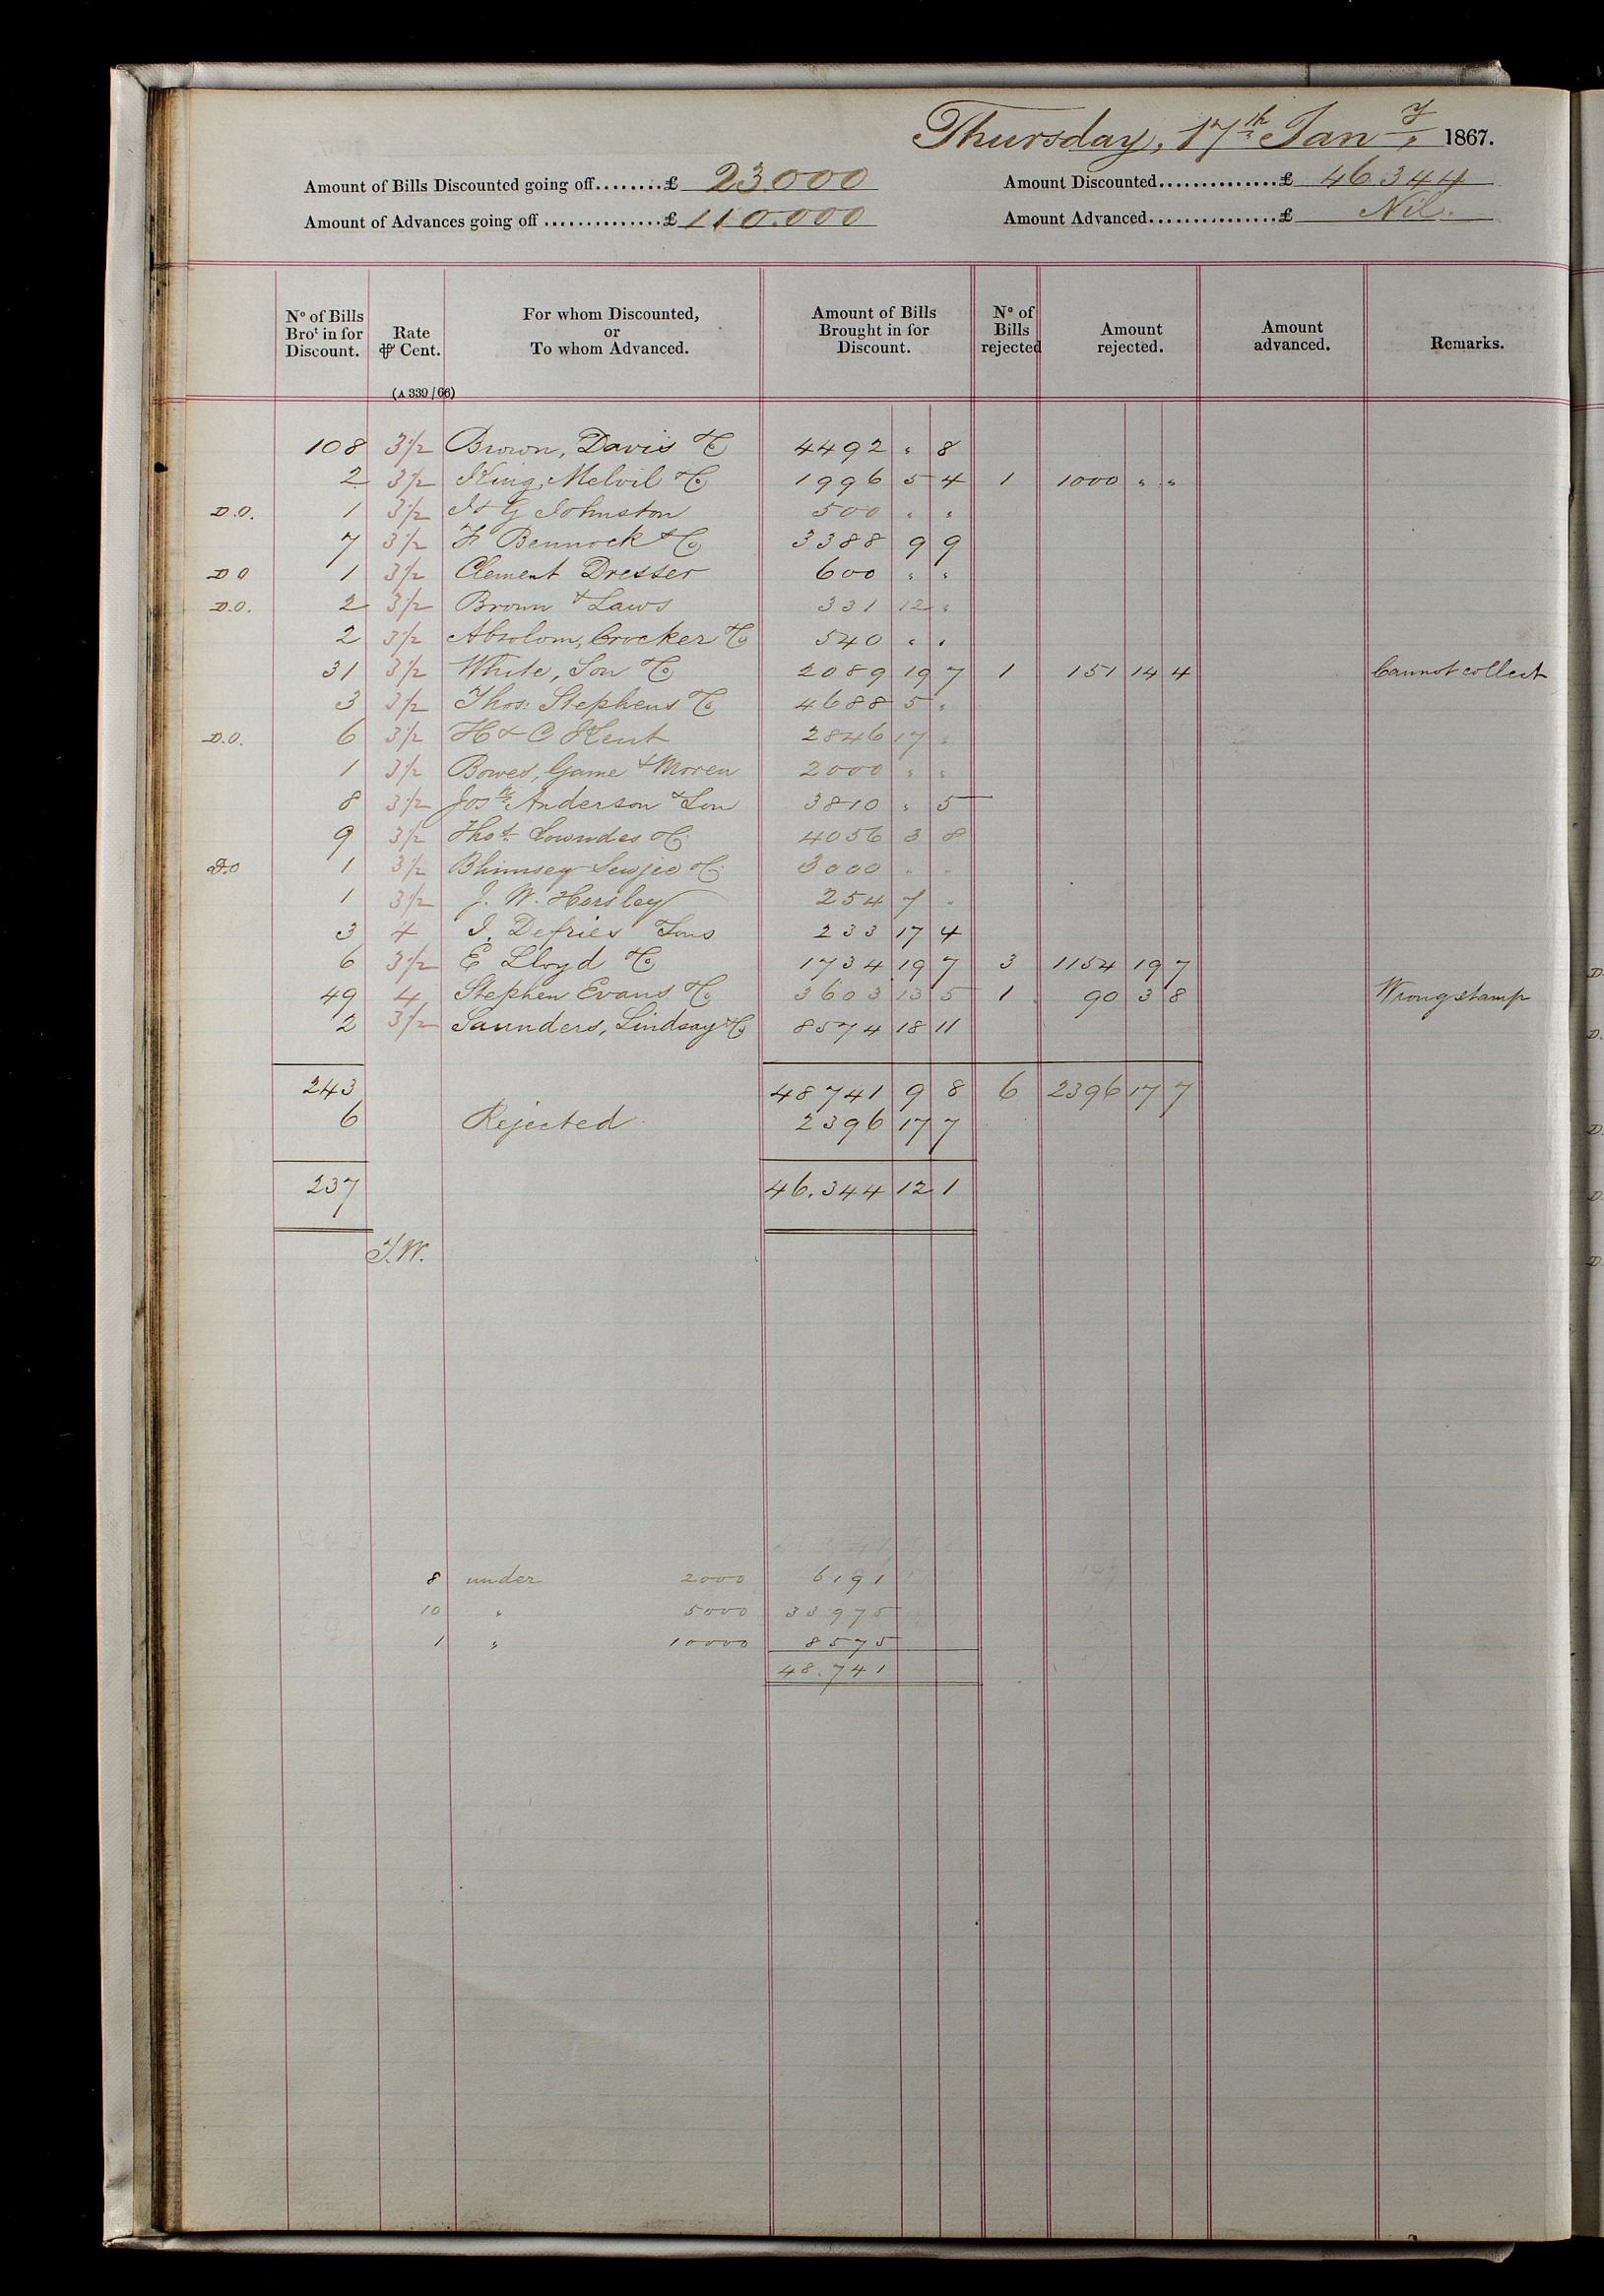 Thursday, 17th Jany, 1867.
Amount of Bills Discounted going off........£ 23000 Amount Discounted..............£ 46344
Amount of Advances going off ..............£ 110.000 Amount Advanced...............£ Nil.
No of Bills Brot in for Discount. Rate ⅌ Cent. For whom Discounted, or To whom Advanced. Amount of Bills Brought in for Discount. No of Bills rejected Amount rejected. Amount advanced. Remarks.
(A 339/66)
108 3½ Brown, Davis & Co 4492 " 8
2 3½ King, Melvil & Co 1996 5 4 1 1000 " "
D.O. 1 3½ J & G Johnston 500 " "
7 3½ F Bennock & Co 3388 9 9
D O 1 3½ Clement Dresser 600 " "
D.O. 2 3½ Brown & Laws 331 12 "
2 3½ Absolom, Crocker & Co 540 " "
31 3½ White, Son & Co 2089 19 7 1 151 14 4 Cannot collect
3 3½ Thos: Stephens & Co 4688 5 "
D.O. 6 3½ H & C Kent 2846 17 "
1 3½ Bowes, Game & Moren 2000 " "
8 3½ Josh Anderson & Son 3810 " 5
9 3½ Thos Lowndes & Co 4056 3 8
D.O 1 3½ & Co 3000 " "
1 3½ J. W. Horsley 254 7 "
3 4 J. Defries & Sons 233 17 4
6 3½ E Lloyd & Co 1734 19 7 3 1154 19 7
49 4 Stephen Evans & Co 3603 13 5 1 90 3 8 Wrong stamp
2 3½ Saunders, Lindsay & Co 8574 18 11
243 48741 9 8 6 2396 17 7
6 Rejected 2396 17 7
237 46.344 12 1
T.W.
8 under 2000 6191
10 " 5000 33975
1 " 10000 8575
48.741